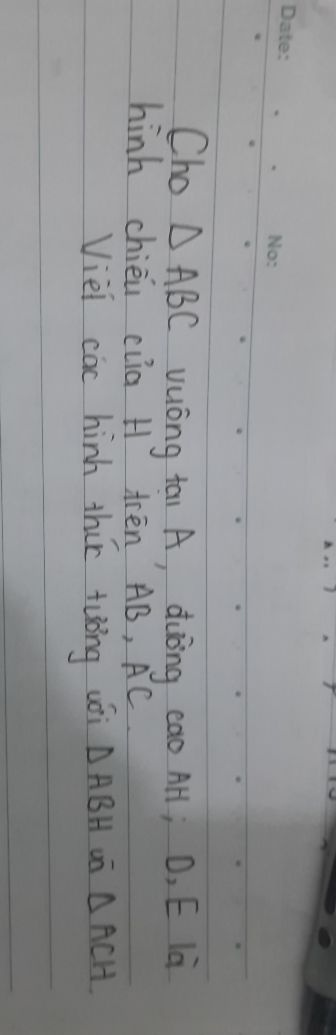 Date: No:
Cho Δ ABC vuông tại A, đường cao AH; D, E là
hình chiếu của H trên AB, AC.
Viết các hình thức tương với Δ ABH và Δ ACH.